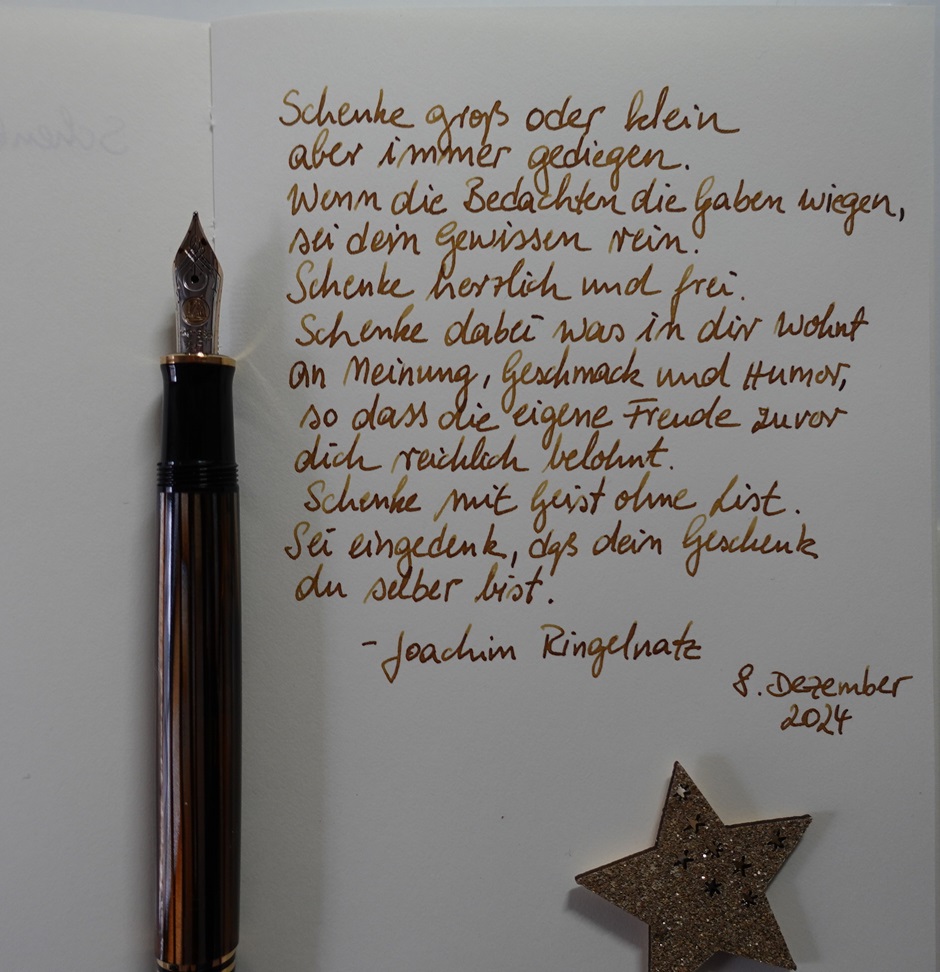 Schenke groß oder klein
aber immer gediegen.
Wenn die Bedachten die Gaben wiegen,
sei dein Gewissen rein.
Schenke herzlich und frei.
Schenke dabei was in dir wohnt
an Meinung, Geschmack und Humor,
so dass die eigene Freude zuvor
dich reichlich belohnt.
Schenke mit Geist ohne List.
Sei eingedenk, daß dein Geschenk
du selber bist.
- Joachim Ringelnatz
8. Dezember
2024